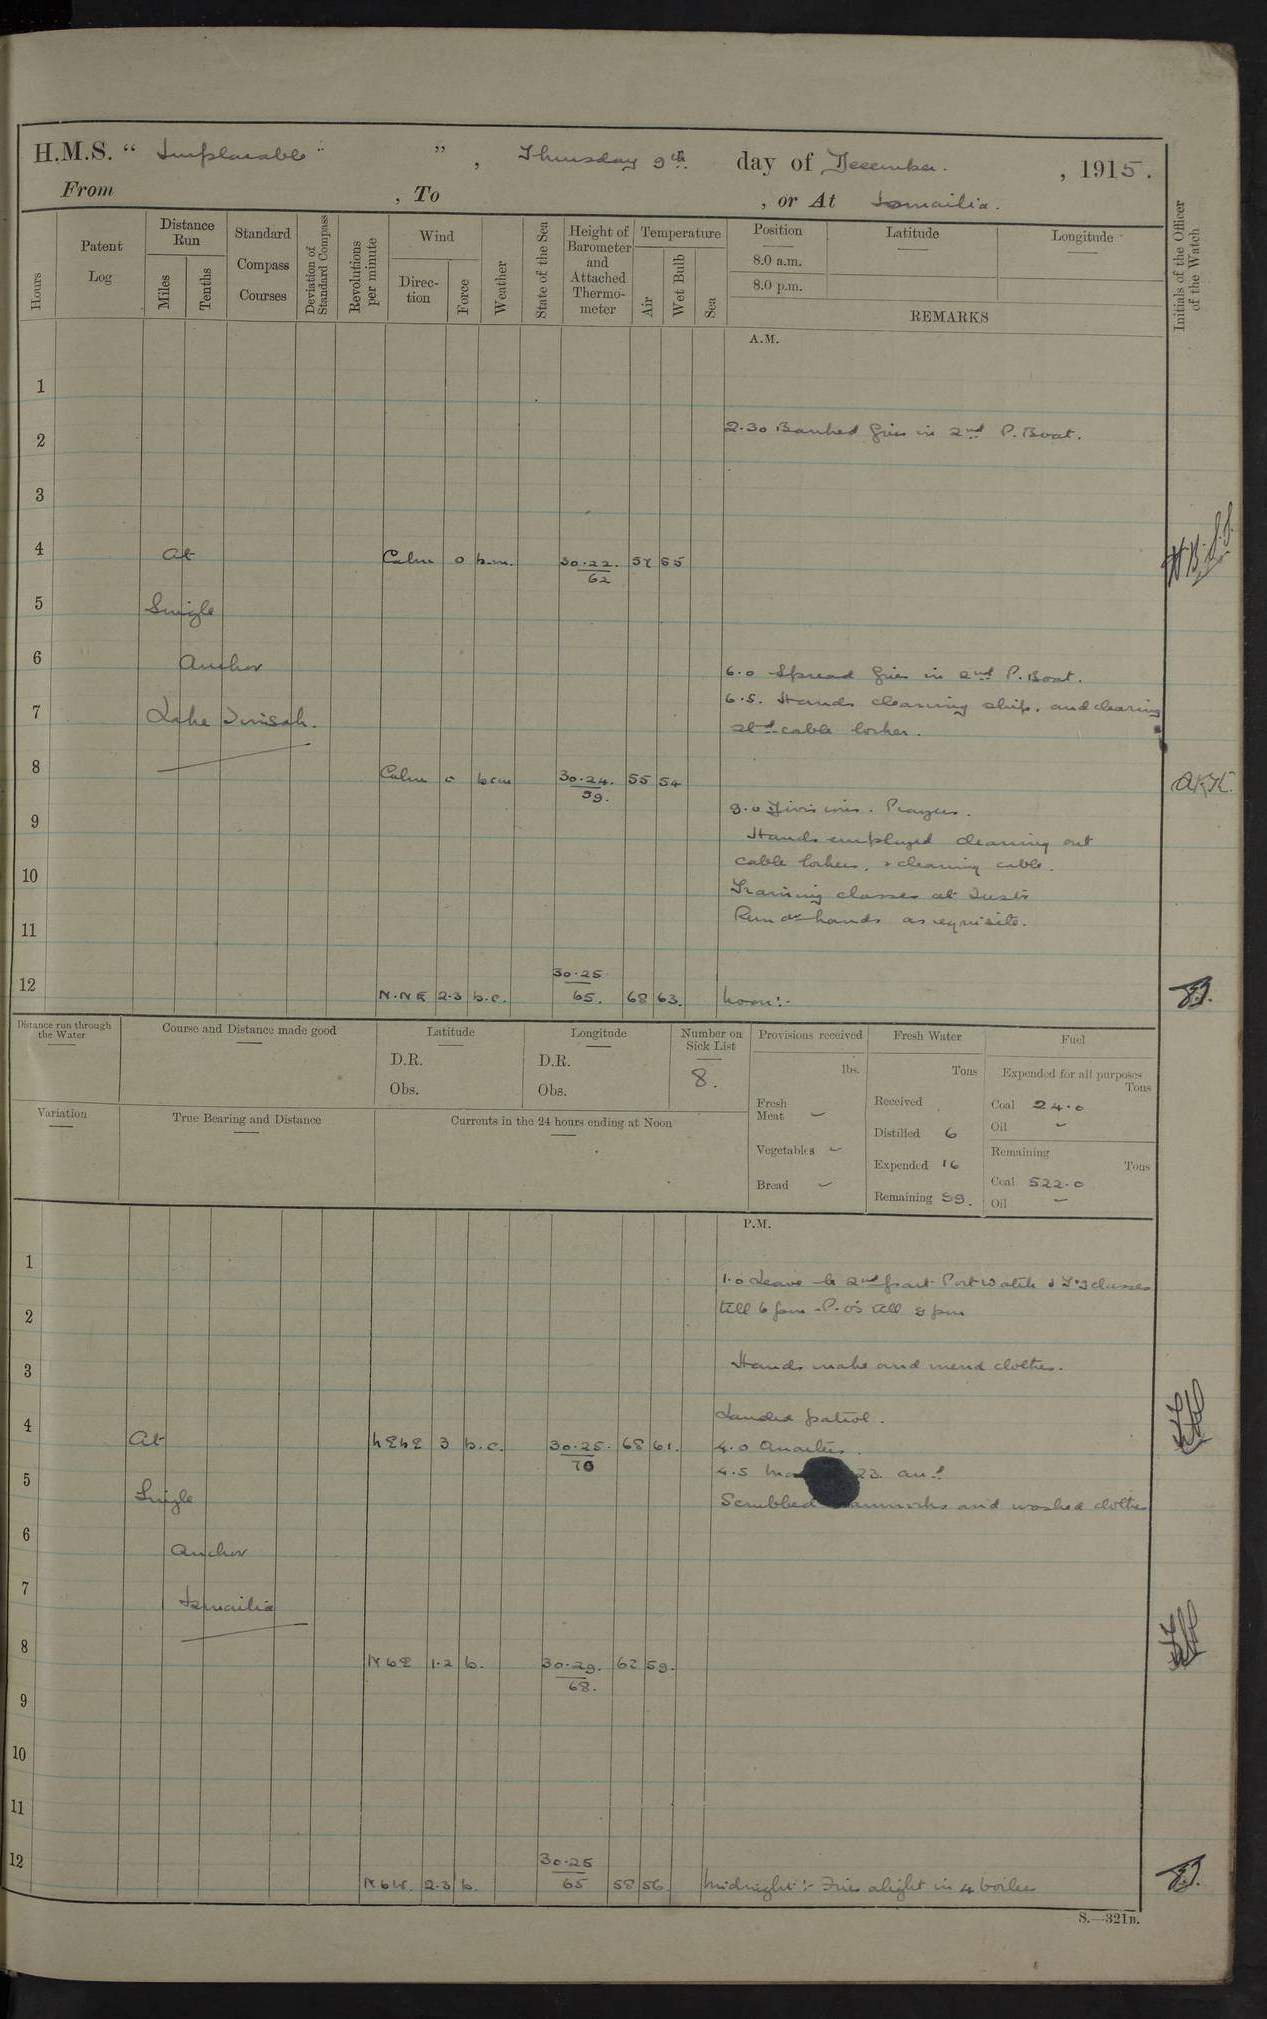 H.M.S. " Implacable " , Thursday 9th day of December. , 1915.
From , To , or At Ismailia.
Hours
Patent Log
Distance Run
Miles
Tenths
Standard Compass Courses
Deviation of Standard Compass
Revolutions per minute
Wind
Direction
Force
Weather
State of the Sea
Height of Barometer and Attached Thermometer
Temperature
Air
Wet Bulb
Sea
Position
8.0 a.m.
8.0 p.m.
Latitude
Longitude
REMARKS
Initials of the Officer of the Watch
A.M.
1
2 2.30 Banked fires in 2nd P. Boat.
3
4 At Calm 0 b.m. 30.22. 62 57 55
5 Single
6 Anchor 6.0 Spread fires in 2nd P. Boat.
7 Lake Timsah. 6.5. Hands cleaning ship, and clearing
stbd cable locker.
8 Calm 0 bcm 30.24. 59. 55 54 A.K.K.
9 9.0 Divisions. Prayers.
Hands employed cleaning out
10 cable lockers, & cleaning cable.
Training classes at Instr
11 Remdr hands as requisite.
12 N.NE 2-3 b.c. 30.25 65. 68 63. Noon:-
Distance run through the Water
Course and Distance made good
Latitude
D.R.
Obs.
Longitude
D.R.
Obs.
Number on Sick List
8.
Provisions received
lbs.
Fresh Meat -
Vegetables -
Bread -
Fresh Water
Tons
Received
Distilled 6
Expended 16
Remaining 59.
Fuel
Expended for all purposes
Tons
Coal 24.0
Oil -
Remaining
Tons
Coal 522.0
Oil -
Variation
True Bearing and Distance
Currents in the 24 hours ending at Noon
P.M.
1 1.0 Leave to 2nd part Port watch & T'g classes
2 till 6 pm - P.O's till 9 pm
3 Hands make and mend clothes.
Landed patrol.
4 At NEbE 3 b.c. 30.25. 70 68 61. 4.0 Quarters.
4.5
5 Single Scrubbed hammocks and washed clothes
6 Anchor
7 Ismailia
8 NbE 1-2 b. 30.29. 68. 62 59.
9
10
11
12 NbW. 2-3 b. 30.25 65 58 56 Midnight:- Fires alight in 4 boilers
S.—321B.